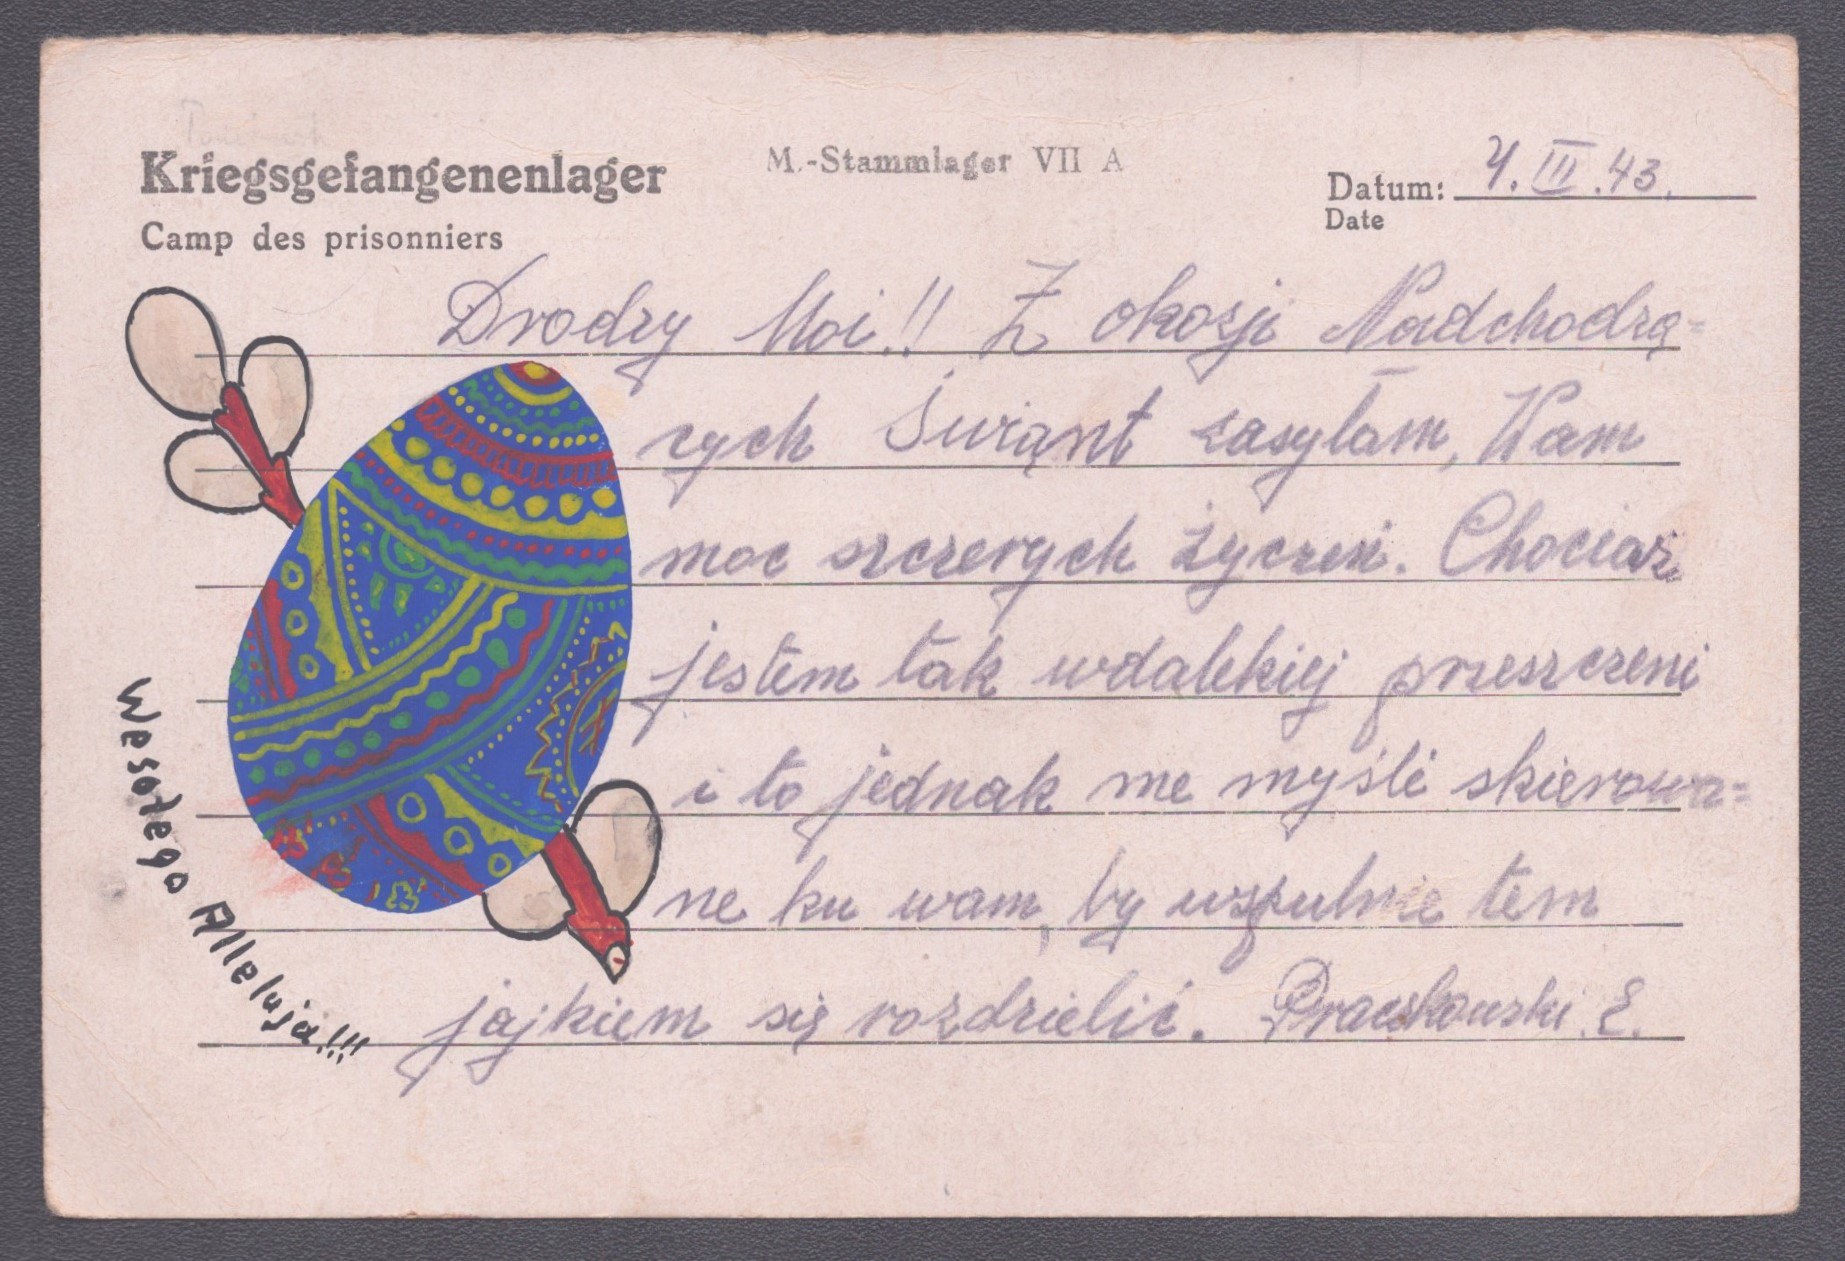 Kriegsgefangenenlager
Camp des prisonniers
M.-Stammlager VII A
Datum: 4. III. 43.
Date
Drodzy Moi!! Z okozji Nadchodzą=
cych Świąnt zasyłam, Wam
moc szczerych życzeń. Chociaż
jestem tak wdalekiej przeszczeni
i to jednak me myśli skierowa=
ne ku wam, by wzpulnie tem
jajkiem się rozdzielić. E.
Wesołego Alleluja!!!